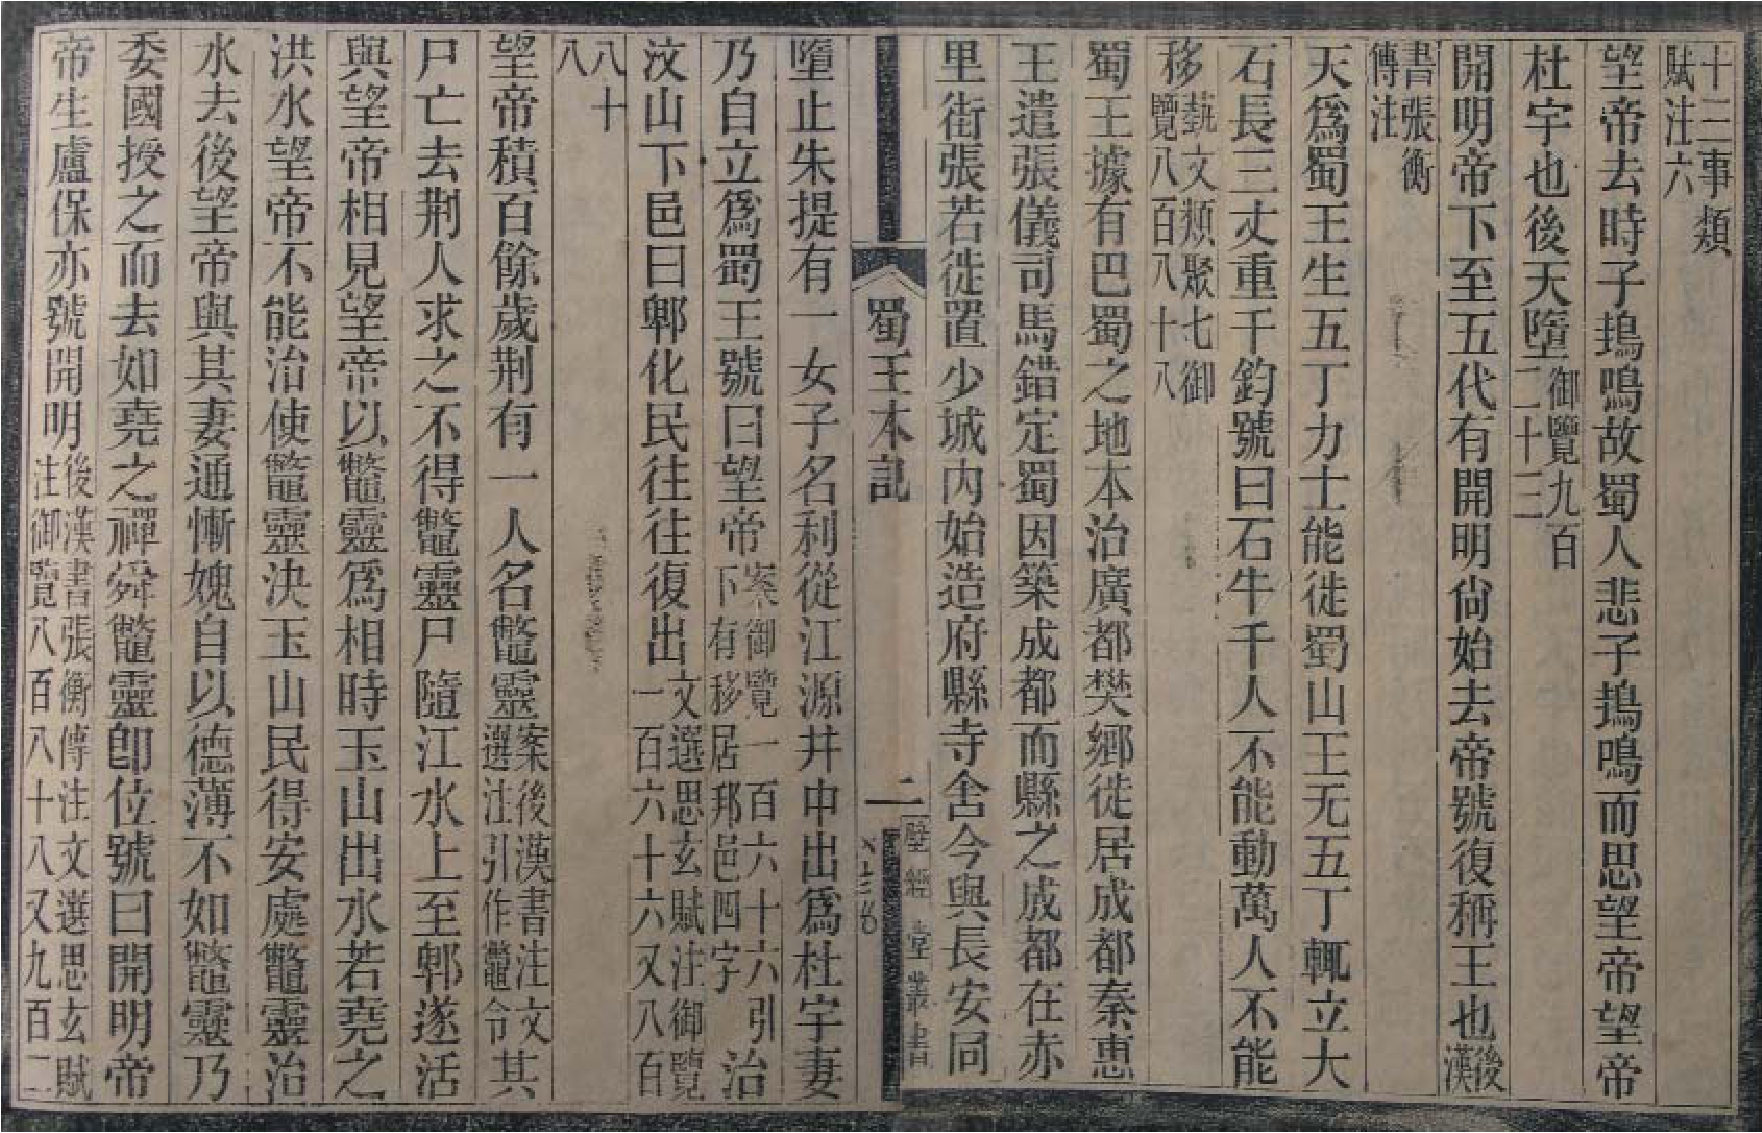 十三事類賦注六
望帝去時子搗鳴故蜀人悲子搗鳴而思望帝望帝
杜宇也後天墮御覽九百二十三
開明帝下至五代有開明尙始去帝號復稱王也後漢
書張衡傳注
天爲蜀王生五丁力士能徙蜀山王无五丁輒立大
石長三丈重千鈞號曰石牛千人不能動萬人不能
移藝文類聚七御覽八百八十八
蜀王據有巴蜀之地本治廣都樊鄉徙居成都秦惠
王遣張儀司馬錯定蜀因築成都而縣之成都在赤
里街張若徙置少城内始造府縣寺舍今與長安同
蜀王本記 二 壁經堂叢書
墮止朱提有一女子名利從江源井中出爲杜宇妻
乃自立爲蜀王號曰望帝案御覽一百六十六引下有移居邦邑四字治
汶山下邑曰郫化民往往復出文選思玄賦注御覽一百六十六又八百
八十八
望帝積百餘歲荆有一人名鼈靈案後漢書注文選注引作鼈令其
尸亡去荆人求之不得鼈靈尸隨江水上至郫遂活
與望帝相見望帝以鼈靈爲相時玉山出水若堯之
洪水望帝不能治使鼈靈決玉山民得安處鼈靈治
水去後望帝與其妻通慚媿自以德薄不如鼈靈乃
委國授之而去如堯之禪舜鼈靈卽位號曰開明帝
帝生盧保亦號開明後漢書張衡傳注文選思玄賦注御覽八百八十八又九百二